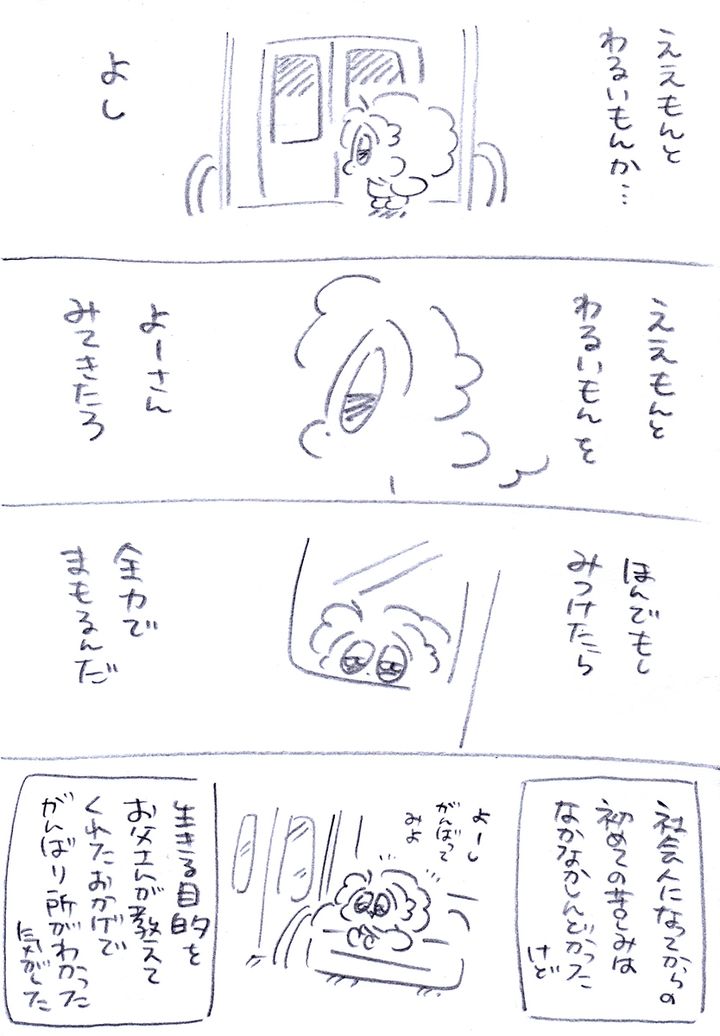 ええもんと
わるいもんか…
よし
ええもんと
わるいもんを
よーさん
みてきたろ
ほんでもし
みつけたら
全力で
まもるんだ
社会人になってからの
初めての苦しみは
なかなかしんどかった
けど
よーし
がんばって
みよ
生きる目的を
お父さんが教えて
くれたおかげで
がんばり所がわかった
気がした